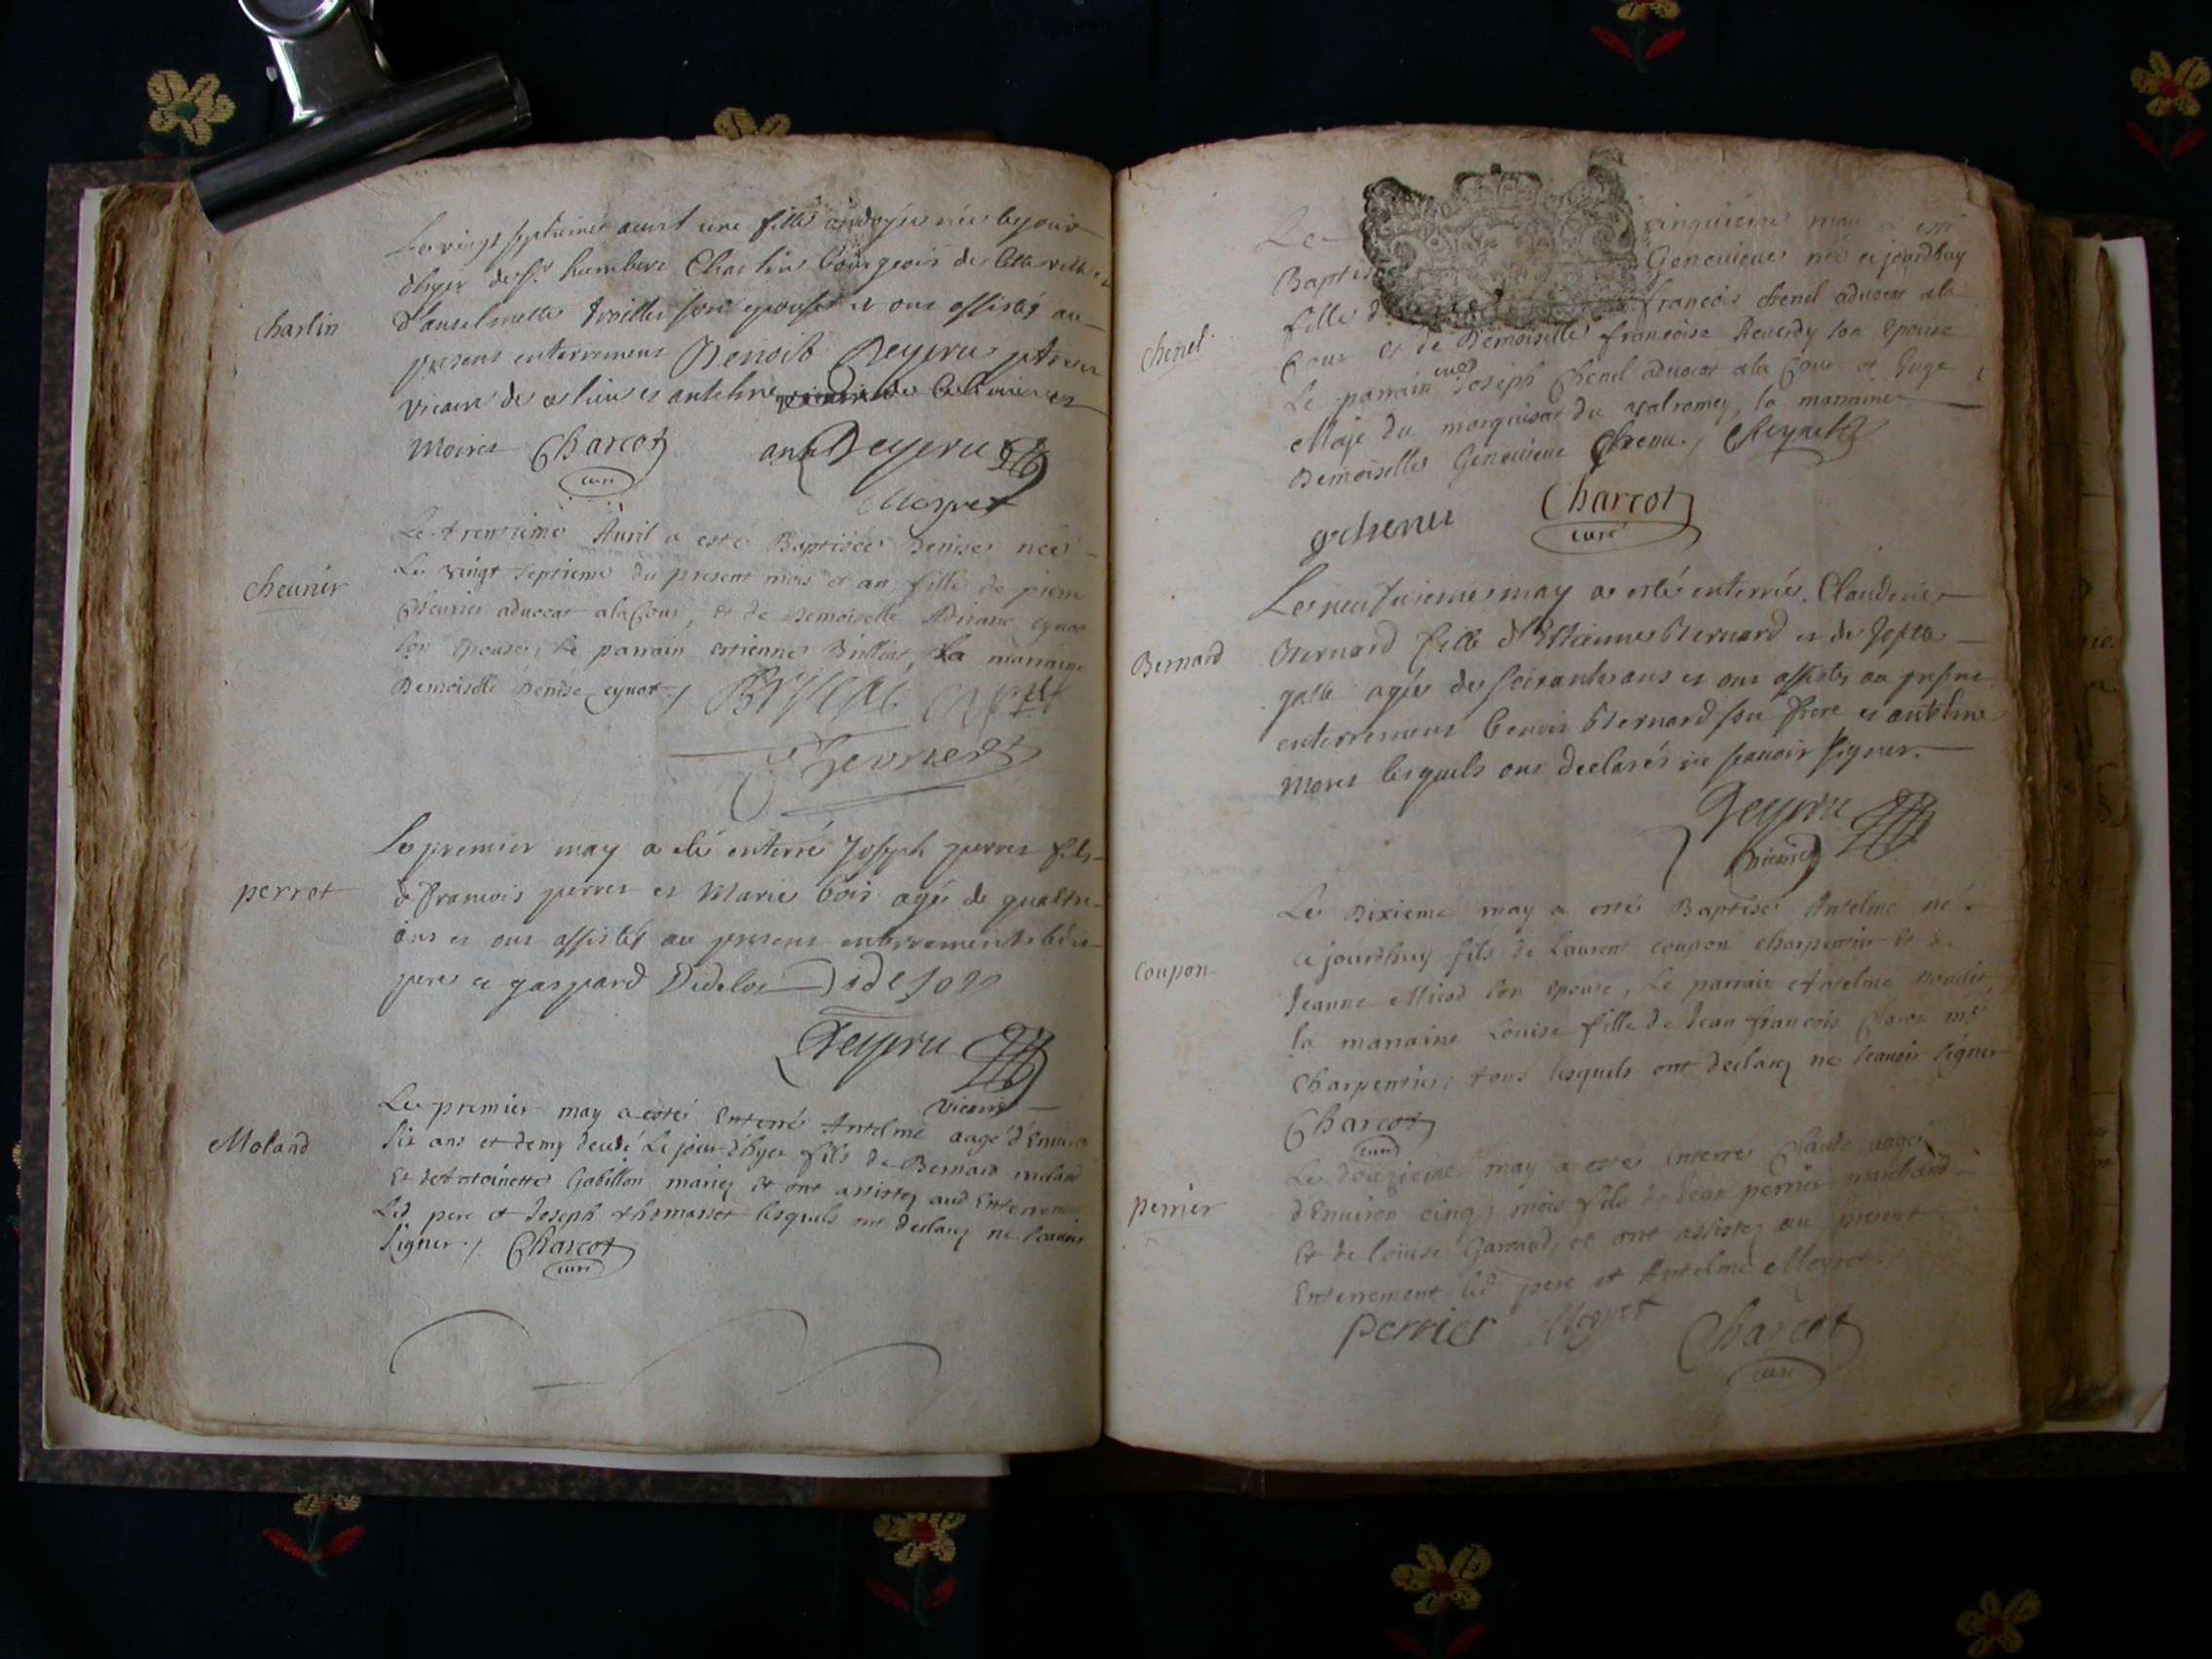 charlin
Le vingt septieme avril une fille ondoyée née le jour
d'hyer de Sr. humbert Charlin bourgeois de cette ville
d'anselmette son epouse et ont assisté au
present enterrement Benoit Deyeru
vicaire de ce lieu et antelme
Moiret Charcot ant Deyeru
curé
Moyret
cheurier
Le trentieme Avril a esté Baptisée Denise née
Le vingt septieme du present mois et an fille de pierre
Cheurier advocat a la Cour, et de Demoiselle Adriane cynot
son Epouse, Le parrain estienne Brilliat, La marraine
Demoiselle Denise cynot ./ Brilliat
Cheurier
perret
Le premier may a été enterré Joseph perret fils
de francois perret et Marie bois agé de quattre
ans et ont assistés au present enterrement ledit
pere et gaspard Didelot
Deyeru
vicaire
Moland
Le premier may a esté Enterré Antelme aagé d'Environ
six ans et demy decedé Le jour d'hyer fils de Bernard moland
Et de Antoinette Gobillon mariez et ont assistez aud Enterrement
Led pere et Joseph thomasset lesquels ont declarez ne scavoir
signer ./ Charcot
curé
chenel
Le cinquieme may a esté
Baptisée Genevieve née ce jourdhuy
fille d francois chenel advocat a la
Cour et de Demoiselle francoise Reverdy son Epouse
Le parrain Joseph Chenel advocat a la Cour et Juge
Maje du marquisat du valromey, la marraine
Demoiselle Genevieve Chenu ./ CReynel
gchenu Charcot
curé
Bernard
Le neufvieme may a esté enterrée Claudine
Bernard fille d'Estienne Bernard et de
agée de soixante ans et ont assistés au present
enterrement benoit Bernard son frere et antelme
Moret lesquels ont declarés ne scavoir signer.
Deyeru
vicaire
coupon
Le Dixieme may a esté Baptisé Antelme né
ce jourdhuy fils de Laurent coupon charpentier et de
Jeanne Miod son Epouse, Le parrain Antelme
la marraine Louise fille de Jean francois Caron me
Charpentier, tous lesquels ont declarez ne scavoir signer
Charcot
curé
perrier
Le douzieme may a esté enterré Claude aagé
d'Environ cinq mois fils de Jean perrier marchand
Et de Loüise Garraud, et ont assistez au present
Enterrement led pere et Antelme Moyret.
perrier Moyret Charcot
curé